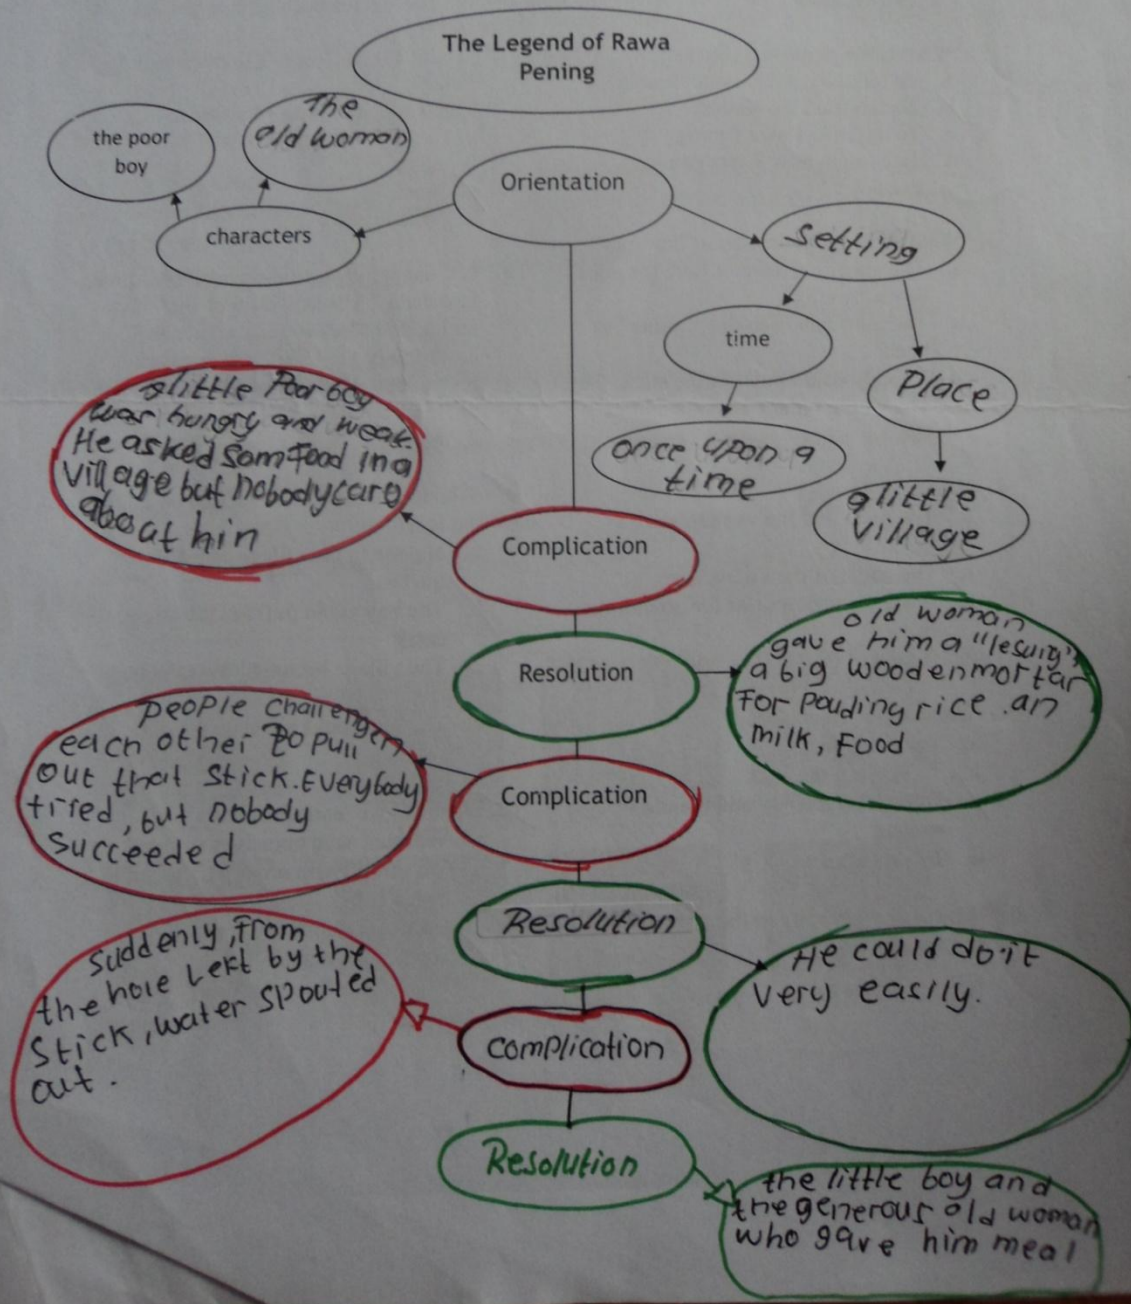 The Legend of Rawa
Pening
the poor
boy
The
old woman
Orientation
characters
setting
time
Place
once upon a
time
a little
village
a little Poor boy
was hungry and weak.
He asked som Food in a
village but nobody care
about hin
Complication
Resolution
old woman
gave him a "lesung",
a big wooden mortar
For pouding rice .an
milk, Food
People challengen
each other to pull
out that stick. Everybody
tired, but nobody
succeeded
Complication
Resolution
He could do it
very easily.
suddenly, from
the hole Lekt by the
stick, water spouted
out.
Complication
Resolution
the little boy and
the generous old woman
who gave him meal